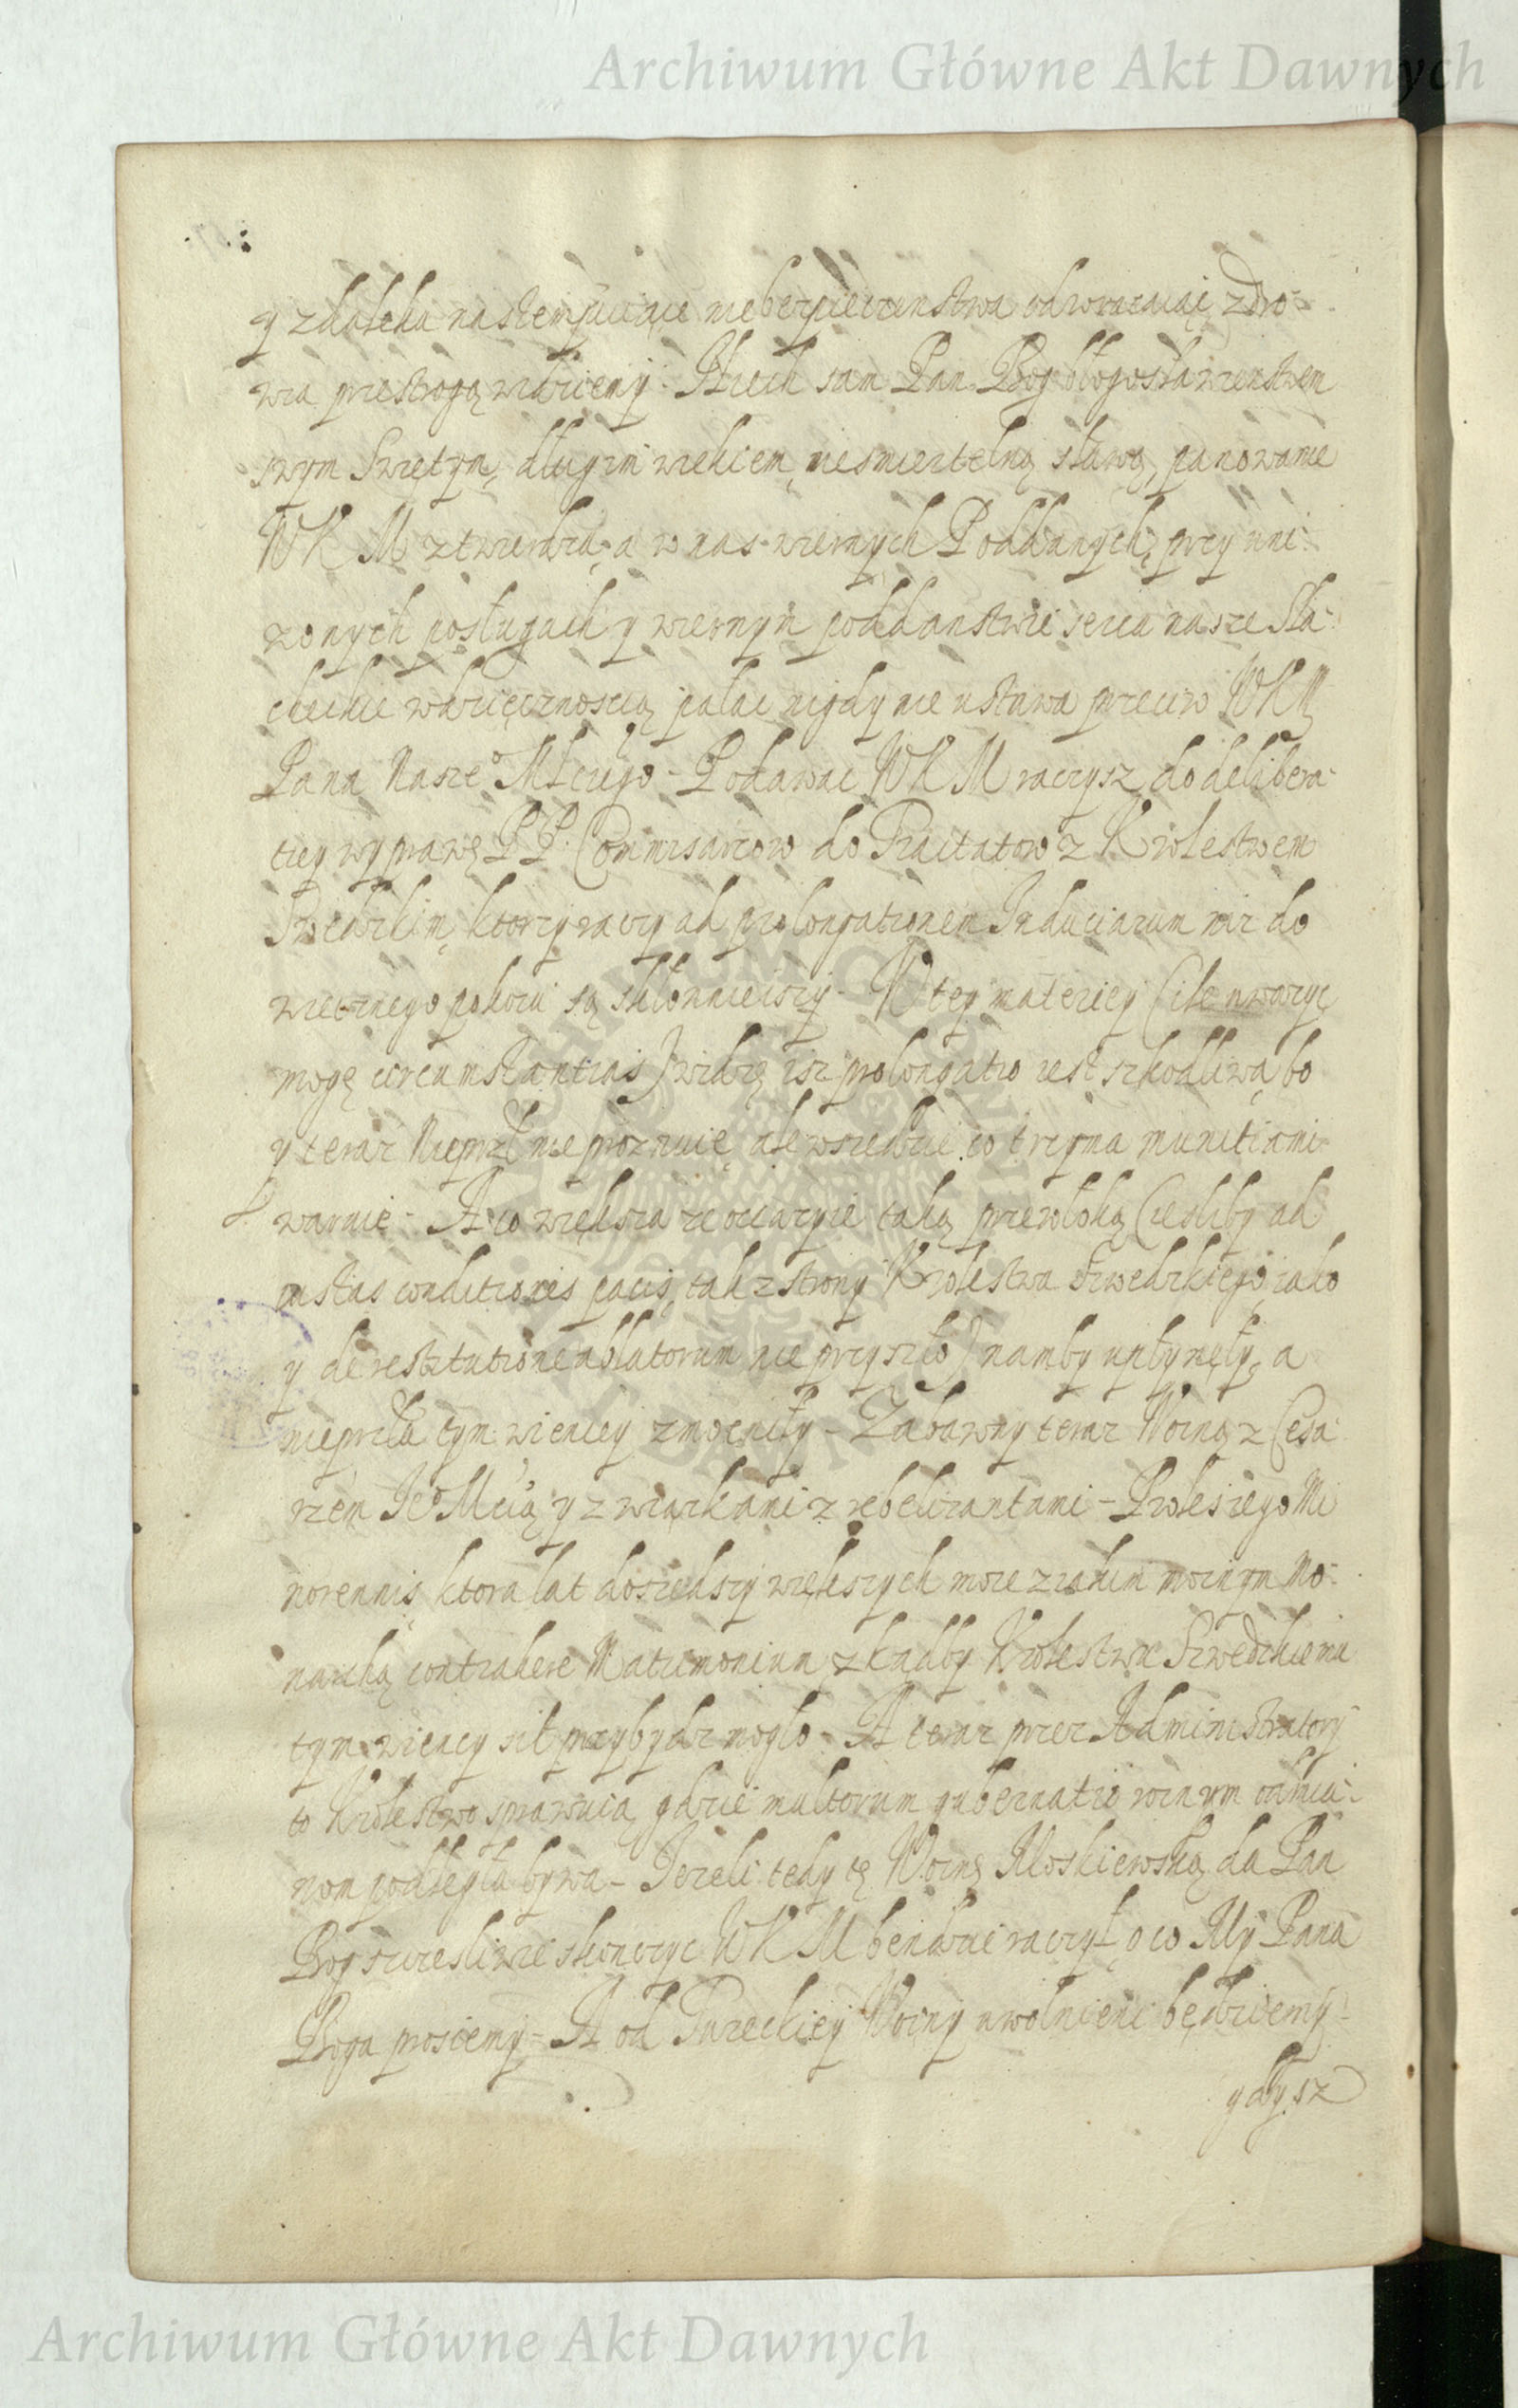 Archiwum Główne Akt Dawnych
y zdaleka nastempuiące niebezpieczenstwa odwracaiąc zdro-
wia przestrogą widziemy. Niech sam Pan Bog błogosławienstwem
swym Swiętym, długim wiekiem, niesmiertelną sławą, panowanie
WKM ztwierdza, a w nas wiernych Poddanych, przy uni-
zonych posługach y wiernym poddanstwie serca nasze Sla-
checkie wdzięcznoscią pałac nigdy nie ustawa przeciw WKM
Pana Naszeº Młciwego - Podawac WKM raczysz do delibera-
tiey wyprawę PP. Commisarzow do Tractatow z Krolestwem
Szwedzkim, ktorzy raczy ad prolongationem Induciarum niz do
wiecznego pokoiu są skłonnieiszy - W tey materiey (ile uwazyc
mogę circumstantias) widzę isz prolongatio iest szkodliwa, bo
y teraz Nieprzl nie proznuie, ale wszedzie co trzyma munitiami
waruie - A co większa ze oczaczyie taką przewloką (iesliby ad
iustas conditiones pacis, tak z strony Krolestwa Szwedzkiego, iako
y de restitutione ablatorum nie przyszło) namby upłynęły, a
nieprzla tym wiencey zmocniły - Zabawny teraz Woiną z Cesa-
rzem Jeº Mcią y z wiązkami z rebelizantami - Krolestego Mi
norennis, ktora lat doszedszy większych moze z iakim mocnym Mo-
narchą contrahere Matrimonium zkądby Krolestwu Szwedzkiemu
tym wiencey sił przybydz mogło - A teraz przez Administratory
to Krolestwo sprawuią gdzie multorum gubernatio roznym odmia-
nom podległa bywa - Jezeli tedy tę Woinę Moskiewską da Pan
Bog szczesliwie skonczyc WKM bendzie raczył, o co My Pana
Boga prosiemy - A od Tureckiey Woiny uwolnieni będziemy -
gdysz
Archiwum Główne Akt Dawnych